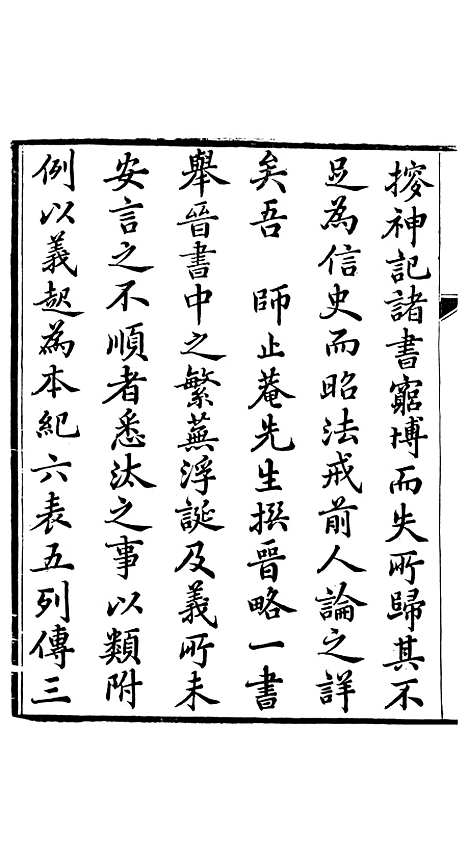 搜神記諸書窮博而失所歸其不
足為信史而昭法戒前人論之詳
矣吾　師止菴先生撰晉略一書
舉晉書中之繁蕪浮誕及義所未
安言之不順者悉汰之事以類附
例以義起為本紀六表五列傳三